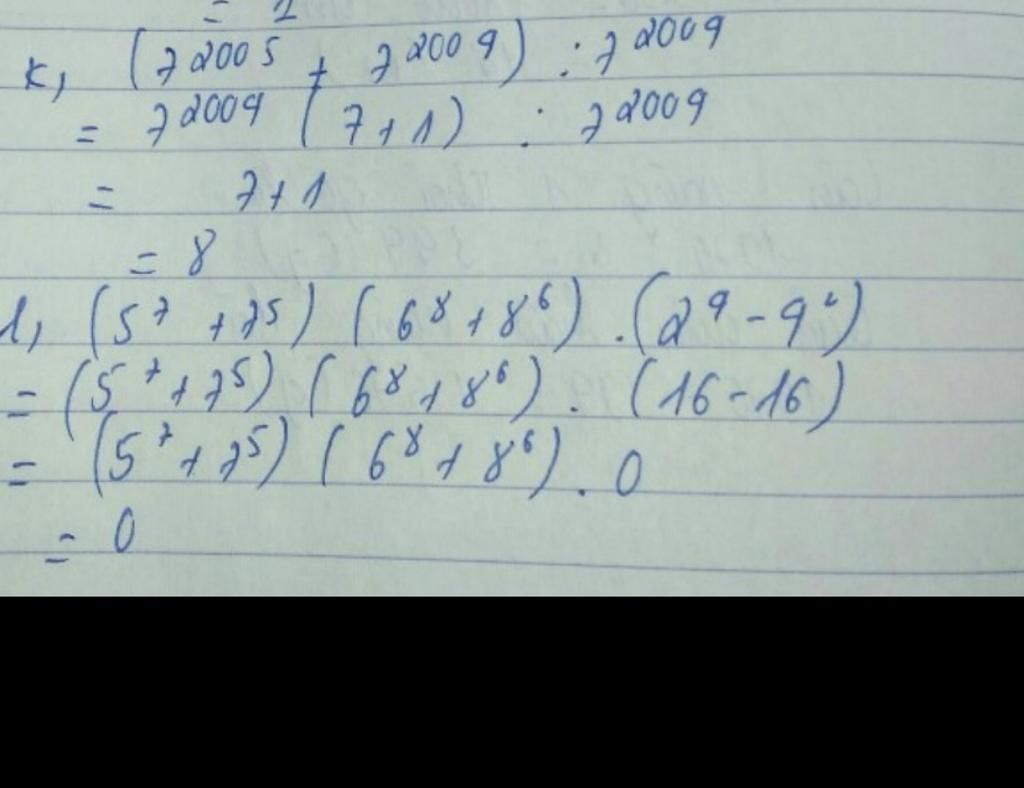 =
k, (7²⁰⁰⁵ + 7²⁰⁰⁴) : 7²⁰⁰⁴
= 7²⁰⁰⁴ (7+1) : 7²⁰⁰⁴
= 7+1
= 8
l, (5⁷ + 7⁵) (6⁸ + 8⁶) . (2⁴ - 4²)
= (5⁷ + 7⁵) (6⁸ + 8⁶) . (16 - 16)
= (5⁷ + 7⁵) (6⁸ + 8⁶) . 0
= 0